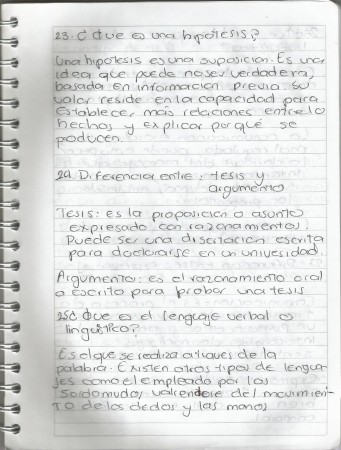 23. ¿ Que es una hipotesis?
Una hipotesis es una suposicion. Es una
idea que puede no ser verdadera,
basada en informacion previa su
valor reside en la capacidad para
establecer mas relaciones entre lo
hechos y explicar porqué se
producen.
24. Diferencia entre: tesis y
argumento
Tesis: es la proposicion o asunto
expresado con razonamientos.
Puede ser una disertacion escrita
para doctorarse en un universidad.
Argumento: es el razonamiento oral
o escrito para probar una tesis
25¿ Que es el lenguaje verbal o
lingüistico?
Es el que se realiza atraves de la
palabra. Existen otros tipos de lengua-
jes como el empleado por los
sordomudos valiendose del movimien-
to de los dedos y las manos